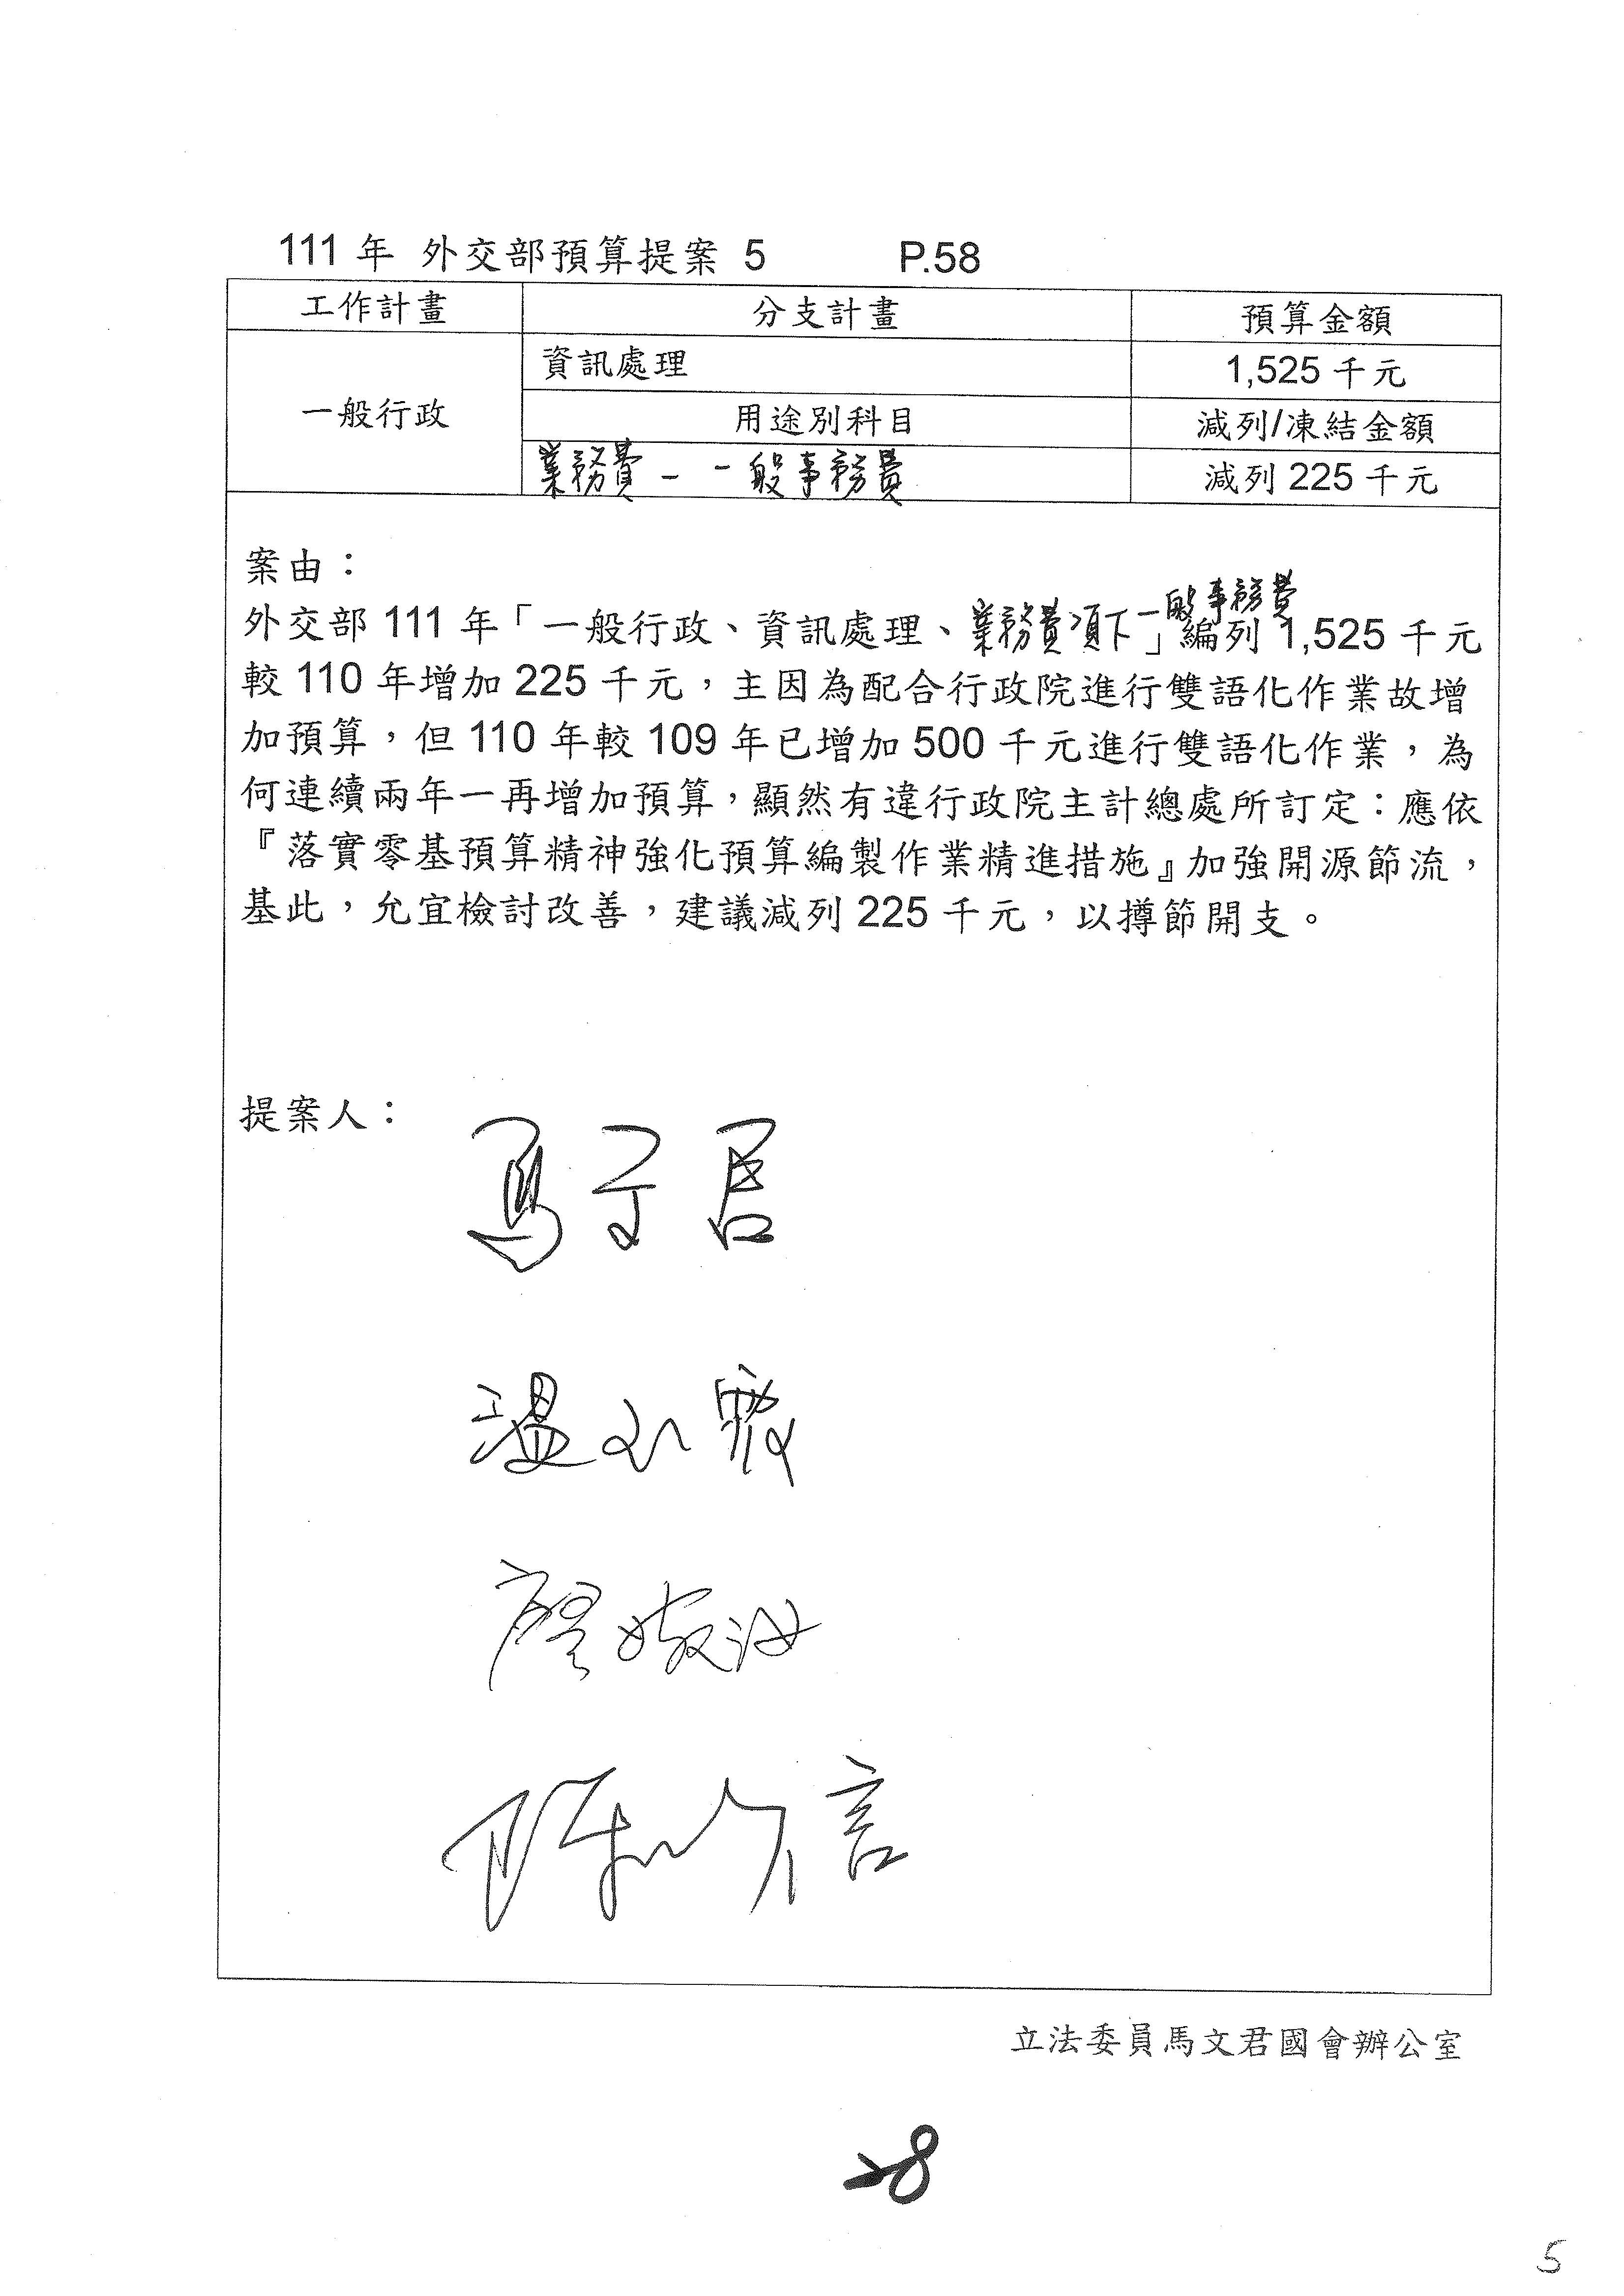 111 年 外交部預算提案 5 P.58
工作計畫 分支計畫 預算金額
一般行政 資訊處理 1,525 千元
用途別科目 減列/凍結金額
業務費－一般事務費 減列 225 千元
案由：
外交部 111 年「一般行政、資訊處理、業務費項下一般事務費」編列 1,525 千元
較 110 年增加 225 千元，主因為配合行政院進行雙語化作業故增
加預算，但 110 年較 109 年已增加 500 千元進行雙語化作業，為
何連續兩年一再增加預算，顯然有違行政院主計總處所訂定：應依
『落實零基預算精神強化預算編製作業精進措施』加強開源節流，
基此，允宜檢討改善，建議減列 225 千元，以撙節開支。
提案人：
馬文君
溫玉霞
廖婉汝
陳以信
立法委員馬文君國會辦公室
28
5